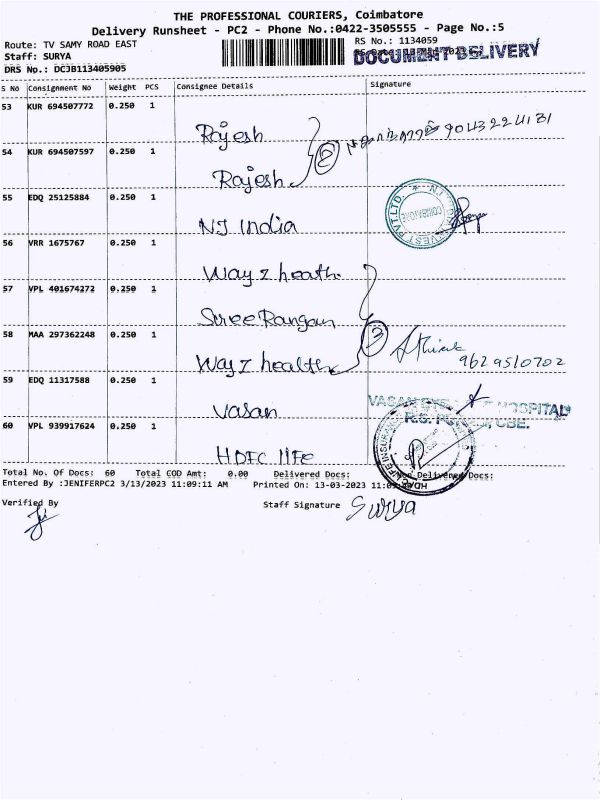 THE PROFESSIONAL COURIERS, Coimbatore
Delivery Runsheet - PC2 - Phone No.:0422-3505555 - Page No.:5
Route: TV SAMY ROAD EAST
RS No.: 1134059
Staff: SURYA
DOCUMENT DELIVERY
DRS No.: DCJB113405905
S No Consignment No Weight PCS Consignee Details Signature
53 KUR 694507772 0.250 1 Rajesh
2 9043224131
54 KUR 694507597 0.250 1 Rajesh
55 EDQ 25125884 0.250 1 NJ India
56 VRR 1675767 0.250 1 Way 2 heath
57 VPL 401674272 0.250 1 Sree Rangan
58 MAA 297362248 0.250 1 Way 2 health
3 9629510702
59 EDQ 11317588 0.250 1 Vasan
VASAN EYE HOSPITAL
60 VPL 939917624 0.250 1 HDFC life
Total No. Of Docs: 60 Total COD Amt: 0.00 Delivered Docs: Non Delivered Docs:
Entered By :JENIFERPC2 3/13/2023 11:09:11 AM Printed On: 13-03-2023
Verified By
Staff Signature Surya